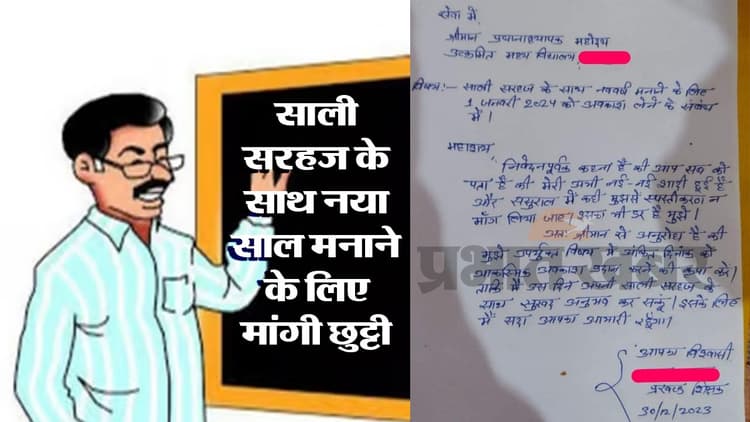 साली
सरहज के
साथ नया
साल मनाने
के लिए
मांगी छुट्टी
सेवा में,
श्रीमान प्रधानाध्यापक महोदय
उत्क्रमित मध्य विद्यालय
विषय:- साली सरहज के साथ नववर्ष मनाने के लिए
1 जनवरी 2024 को अवकाश लेने के संबंध
में।
महाशय,
निवेदनपूर्वक कहना है की आप सब को
पता है की मेरी अभी नई-नई शादी हुई है
और ससुराल में कहीं मुझसे स्पस्टीकरण न
माँग लिया जाए। इसका भी डर है मुझे।
अतः श्रीमान से अनुरोध है की
मुझे उपर्युक्त विषय में अंकित दिनांक को
आकस्मिक अवकाश प्रदान करने की कृपा करें।
ताकि मैं उस दिन अपनी साली सरहज के
साथ सुखद अनुभव कर सकूं। इसके लिए
मैं सदा आपका आभारी रहूँगा।
प्रभात खबर
आपका विश्वासी
प्रखंड शिक्षक
30/12/2023